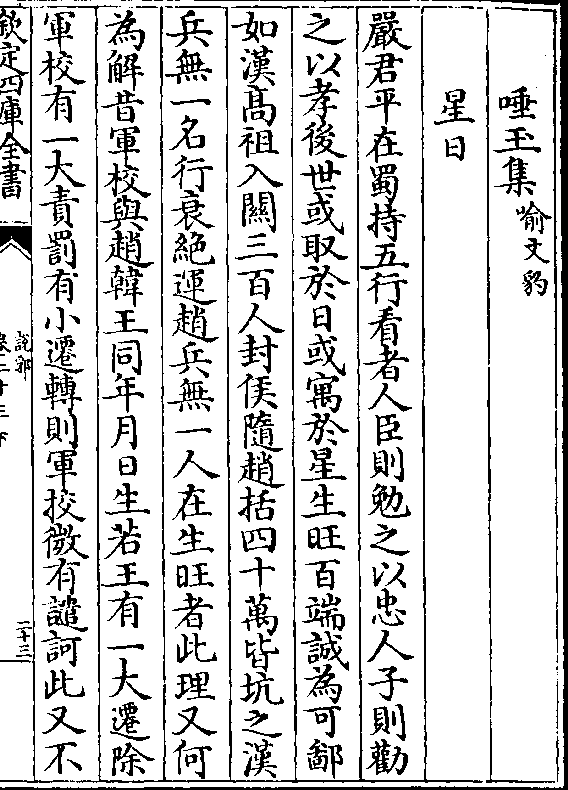 唾玉集俞文豹
星日
嚴君平在蜀持五行看者人臣則勉之以忠人子則勸
之以孝後世或取於日或寓於星生旺百端誠為可鄙
如漢髙祖入關三百人封侯隨趙括四十萬皆坑之漢
兵無一名行衰絶運趙兵無一人在生旺者此理又何
為解昔軍校與趙韓王同年月日生若王有一大遷除
軍校有一大責罰有小遷轉則軍挍微有譴訶此又不
欽定四庫全書
說郛
卷二十三下
二十三